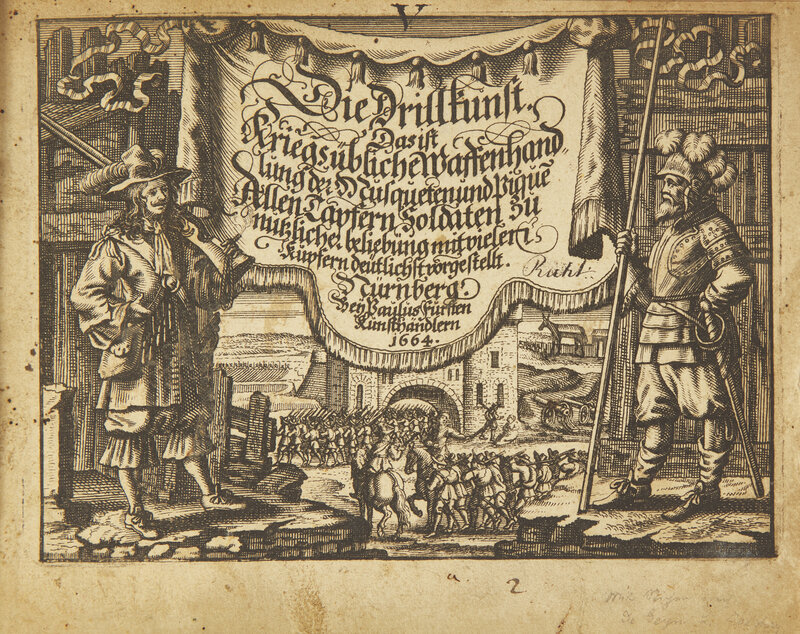 V
Die Drillkunst.
Das ist
Kriegsübliche Waffenhand-
lung der Musqueten und Pique
Allen Tapfern Soldaten zu
nutzlicher beliebung mit vielen
Kupfern deutlichst vorgestellt.
Ruhl
Nürnberg.
Bey Paulus Fürsten
Kunsthändlern
1664.
a 2